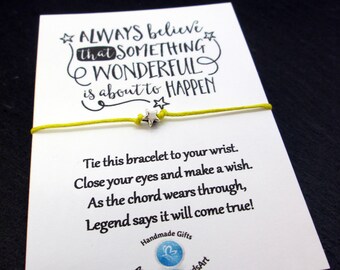 ALWAYS believe
that SOMETHING
WONDERFUL
is about to HAPPEN
Tie this bracelet to your wrist.
Close your eyes and make a wish.
As the chord wears through,
Legend says it will come true!
Handmade Gifts